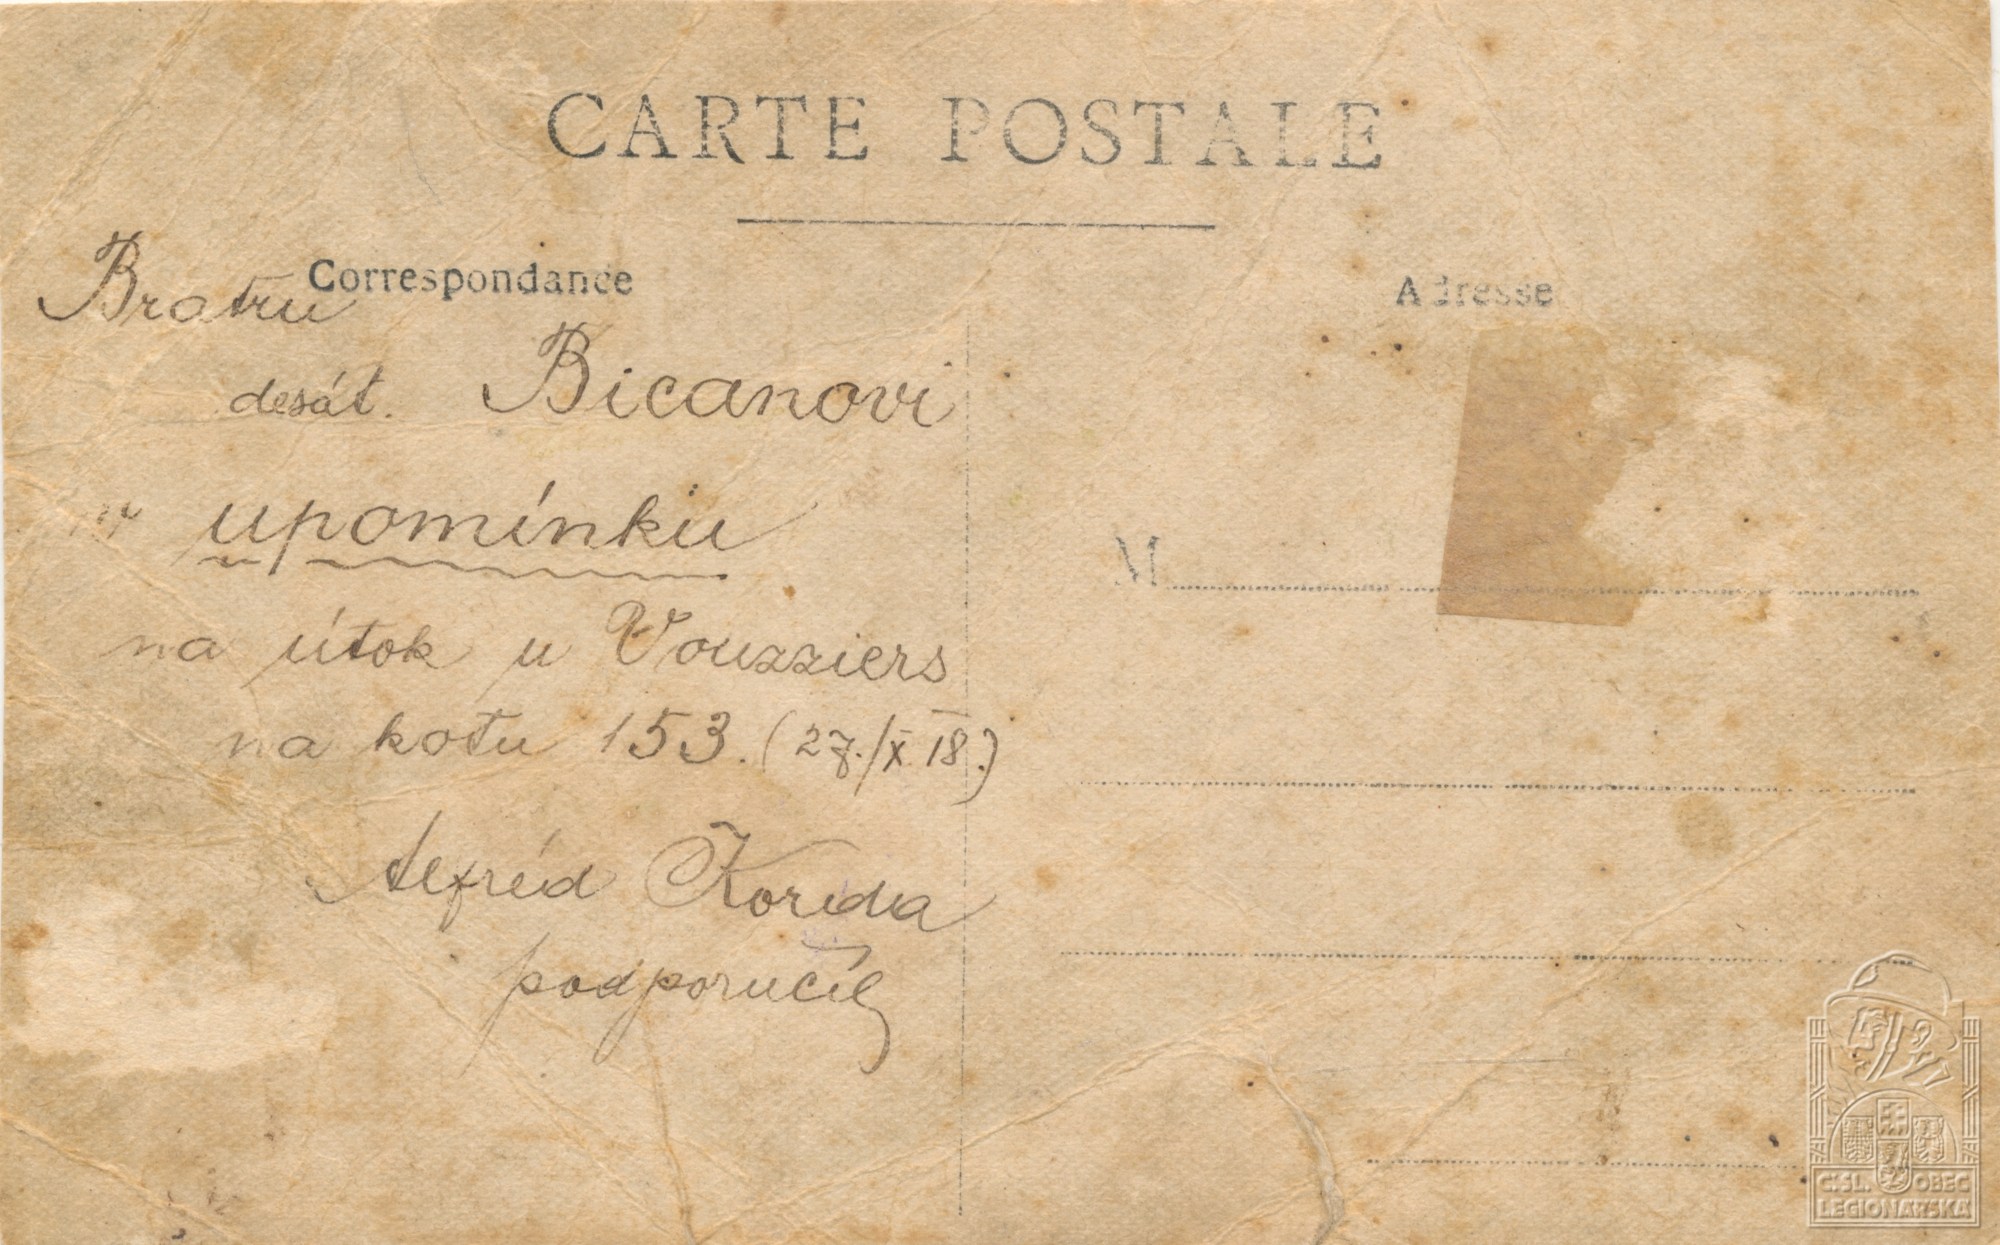 CARTE POSTALE
Correspondance
Adresse
Bratru
desát. Bicanovi
upomínku
na útok u Vouzziers
na kotu 153. (27./X 18.)
Alfréd
podporučík
M
Č.SL. OBEC
LEGIONÁŘSKÁ